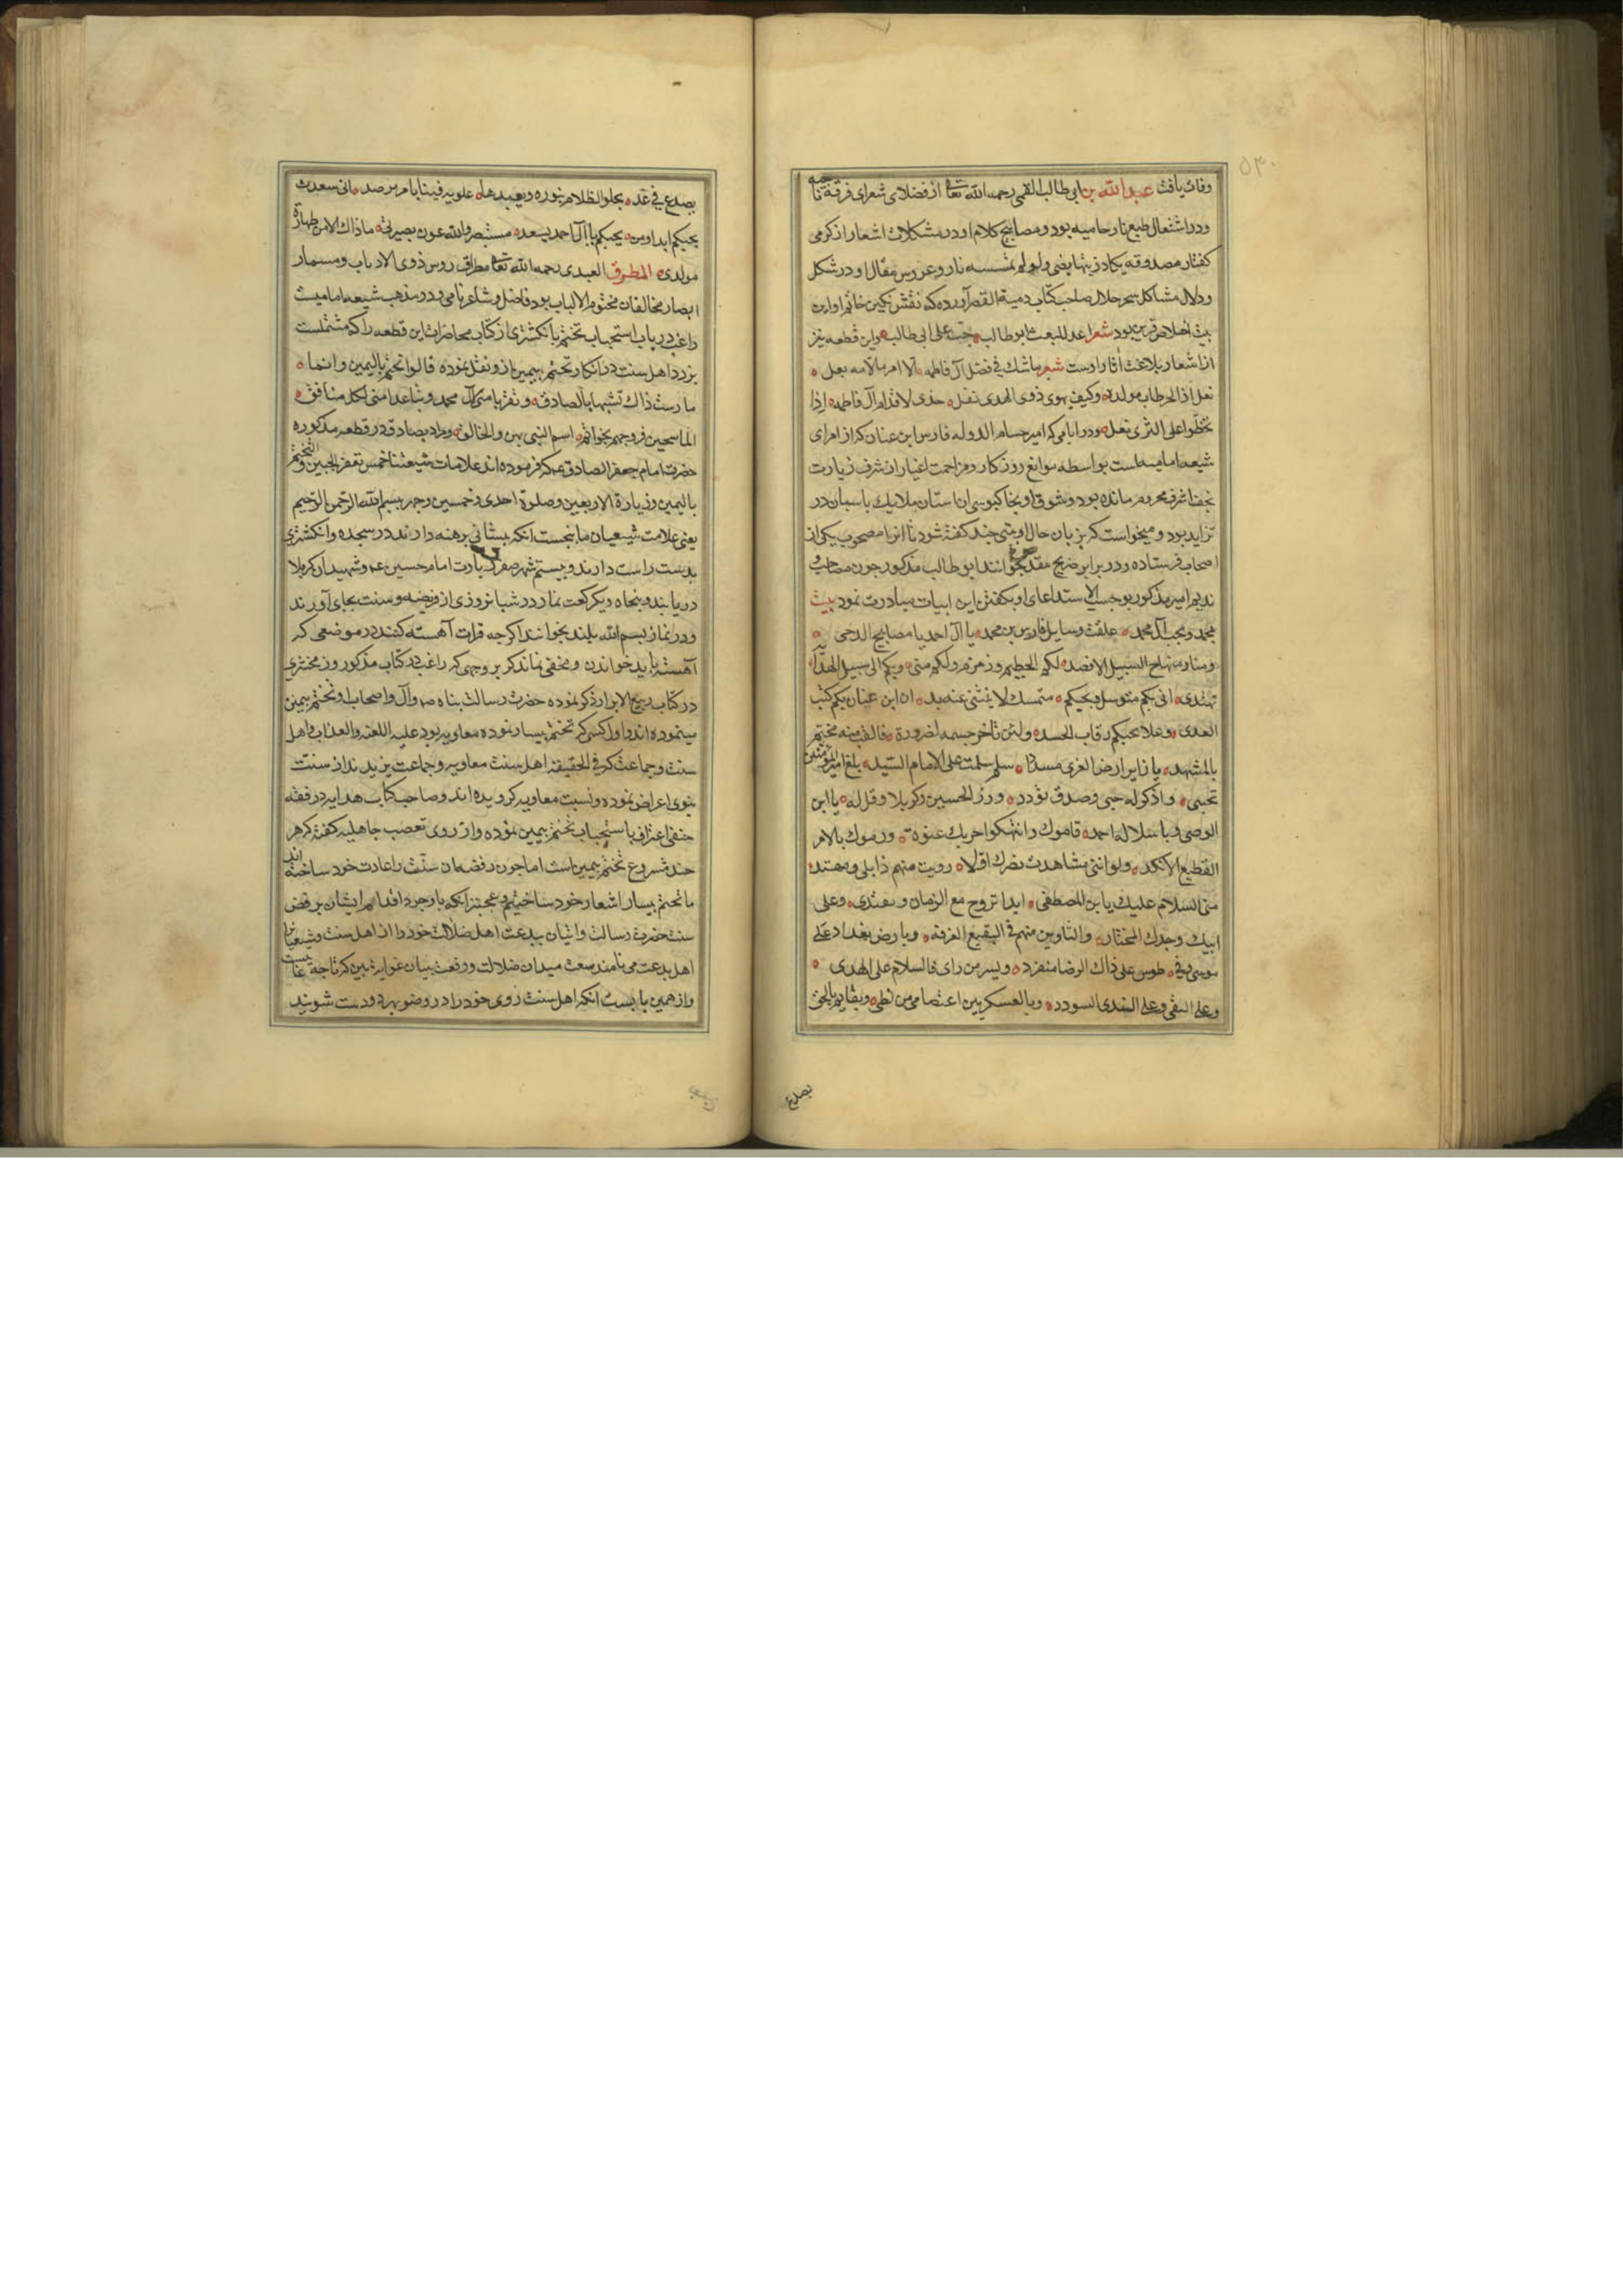 ۵۳۰
وفات یافت عبد الله بن ابی طالب القمی رحمه الله تعا از فضلای شعرای فرقه ناجیه
ودر اشتعال طبع نار حامیه بود ومصابیح کلام او در مشکلات اشعار از کرمی
کفتار مصدوقه یکاد زیتها یضی ولو لم تمسسه نار وعروس مقال او در شکل
ودلال مشاکل سحر حلال صاحب کتاب دمیة القصر آورده که نقش نکین خاتم او این
بیت اخلاص قرین بود شعر اعد للبعث ابو طالب حب علی ابی طالب واین قطعه نیز
از اشعار بلاغت آثار اوست شعر ماشك فی فضل آل فاطمه الا امرء ما لامه بعل
نغل اذا الحر طاب مولده وکیف یهوی ذوی الهدی نغل خدی لاقدام آل فاطمه اذا
تخطوا علی الثری نعل ودر ایامی که امیر حسام الدوله فارس ابن عنان که از امرای
شیعه امامیه است بواسطه موانع روزکار ومزاحمت اغیار از شرف زیارت
نجف اشرف محروم مانده بود وشوق او بخاکبوسی ان استان ملایك پاسبان در
تزاید بود ومیخواست که بزبان حال او بیتی چند کفته شود تا انرا مصحوب یکی از
اصحاب فرستاده ودر برابر ضریح مقدس بخوانند ابو طالب مذکور چون مصاحب و
ندیم امیر مذکور بو حسب الاستدعای او بکفتن این ابیات مبادرت نمود بیت
بمحمد وبحب آل محمد علقت وسایل فارس بن محمد یا آل احمد یا مصابیح الدجی
ومنار منهاج السبیل الاقصد لکم الحطیم وزمزم ولکم منی وبکم الی سبیل الهدایه
تهتدی انی بکم متوسل وبحبکم متمسك لا ینثنی عنه ید ان ابن عنان بکم کبت
العدی وعلا بحبکم رقاب الحسد ولئن تاخر جسمه لضرورة فالقلب منه مخیم
بالمشهد یا زایر ارض الغری مسددا سلم سلمت علی الامام السید بلغ امیر المؤمنین
تحیتی واذکر له حبی وصدق توددی وزر الحسین بکربلا وقل له یا ابن
الوصی ویا سلالة احمد قاموك وانتهکوا حریمك عنوة ورموك بالامر
الفظیع الانکد ولو اننی شاهدت نصرك اولا رویت منهم ذابلی ومهندی
منی السلام علیك یا بن المصطفی ابدا تروح مع الزمان وتغتدی وعلی
ابیك وجدك المختار والثاوین منهم فی البقیع الغرقد وبارض بغداد علی
موسی وفی طوس علی ذاك الرضا منفرد وبسر من رای فالسلام علی الهدی
وعلی التقی وعلی الندی السودد وبالعسکریین اعتصامی من لظی وبقایم بالحق
یصدع
یصدع فی غد یجلو الظلام بنوره ویعیدها علویه فینا بامر مرصد انی سعدت
بحبکم ابدا ومن یحببکم یا آل احمد یسعد مستبصر والله عون بصیرتی ما ذاك الا من طهارة
مولدی المطرق العبدی رحمه الله تعا مطراق روس ذوی الاذناب ومسمار
ابصار مخالفان مختوم الالباب بود فاضل وشاعر نامی ودر مذهب شیعه امامیست
راغب در باب استحباب تختم بانکشتری از کتاب محاضرات این قطعه را که مشتملست
بر رد اهل سنت در انکار تختم بیمین از و نقل نموده قالوا تختم بالیمین وانما
مارست ذاك تشبها بالصادق وتقربا منی آل محمد وتباعدا منی لکل منافق
الماسحین فروجهم بخواتم اسم النبی بهن والخالق ومراد بصادق در قطعه مذکوره
حضرت امام جعفر الصادق عم که فرموده اند علامات شیعتنا خمس تعفیر الجبین والتختم
بالیمین وزیارة الاربعین وصلوة احدی وخمسین وجهر بسم الله الرحمن الرحیم
یعنی علامت شیعیان ما پنجست انکه پیشانی برهنه دارند در سجده وانکشتری
بدست راست دارند وبیستم شهر صفر زیارت امام حسین عم وشهیدان کربلا
دریابند وپنجاه ویکرکعت نماز در شبانروزی از فریضه وسنت بجای آورند
ودر نماز بسم الله بلند بخوانند اکرچه قرات آهسته کنند در موضعی که
آهسته باید خواندن ومخفی نماند که بر وجهی که راغب در کتاب مذکور وزمخشری
در کتاب ربیع الابرار ذکر نموده حضرت رسالت پناه ص وآل واصحاب او تختم بیمین
مینموده اند واول کسی که تختم بیسار نموده معاویه بود علیه اللعنه والعذاب واهل
سنت وجماعت که فی الحقیقة اهل سنت معاویه وجماعت یزیدند از سنت
نبوی اعراض نموده ونسبت معاویه کرویده اند وصاحب کتاب هدایه در فقه
حنفی اعتراف باستحباب تختم بیمین نموده واز روی تعصب جاهلیه کفته که هر
چند مشروع تختم بیمین است اما چون رفضه ان سنت را عادت خود ساخته اند
ما تختم بیسار اشعار خود ساختیم وعجبتر انکه با وجود اقدام ایشان بر رفض
سنت حضرت رسالت واتیان ببدعت اهل ضلالت خود را از اهل سنت وشیعیانرا
اهل بدعت می نامند سعت میدان ضلالت ورفعت بنیان غوایت بین که تا چه غایتست
واز همین بابست انکه اهل سنت روی خود را در وضو بهر دو دست شویند